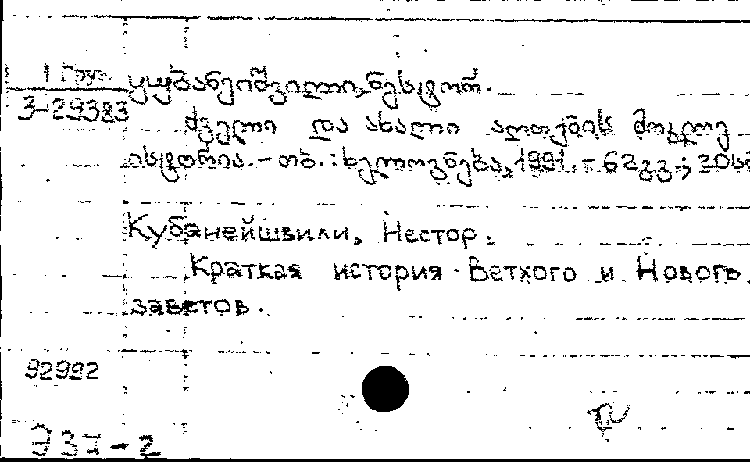 1 Груз.
3-29383
ყუბანეიშვილი, ნესტორ.
ძველი და ახალი აღთქმის მოკლე
ისტორია. - თბ.: ხელოვნება, 1991. - 62 გვ.; 20სმ
Кубанейшвили, Нестор.
Краткая история Ветхого и Нового
заветов.
92992
Э3I-2